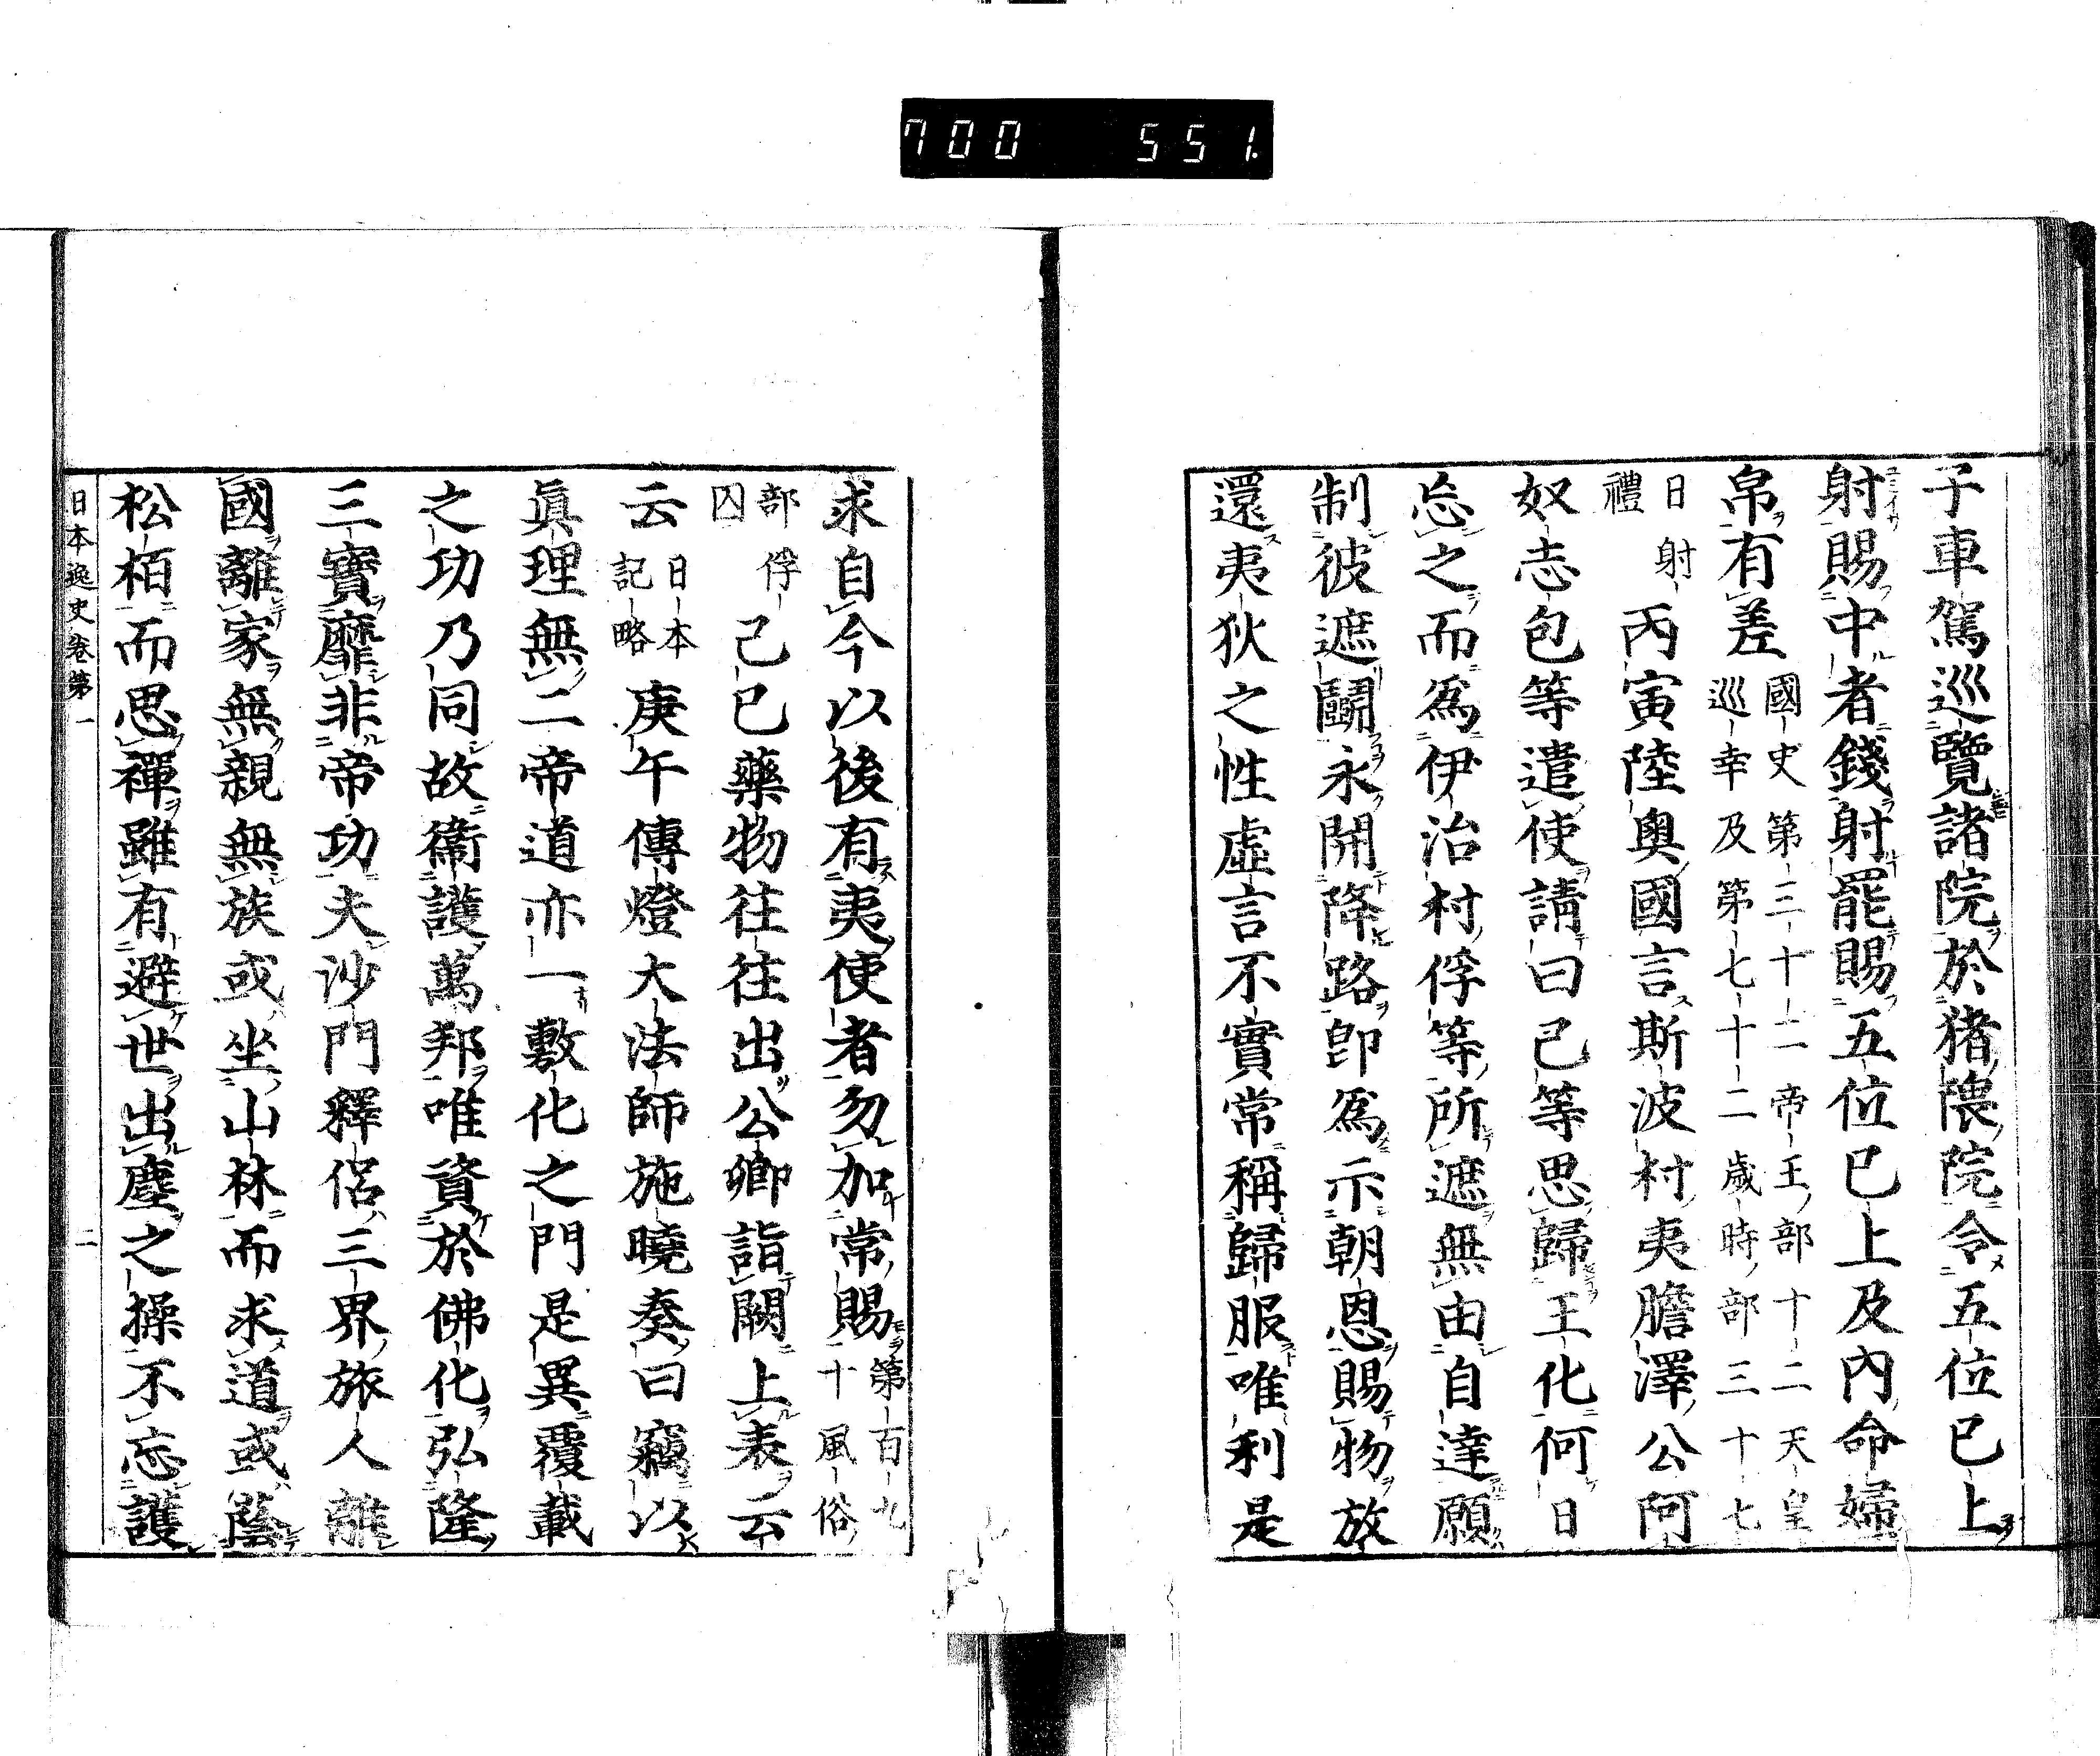 700 551
子車駕巡覽諸院於猪隈院令五位已上
射賜中者錢射罷賜五位已上及內命婦
帛有差國史第三十二帝王部十二天皇
巡幸及第七十二歲時部三十七
日射
禮
丙寅陸奧國言斯波村夷膽澤公阿
奴志包等遣使請曰己等思歸王化何日
忘之而爲伊治村俘等所遮無由自達願
制彼遮鬭永開降路卽爲示朝恩賜物放
還夷狄之性虛言不實常稱歸服唯利是
求自今以後有夷使者勿加常賜第百九
十風俗
部俘
囚
己巳藥物往往出公卿詣闕上表云
云日本
記略
庚午傳燈大法師施曉奏曰竊以
眞理無二帝道亦一敷化之門是異覆載
之功乃同故衞護萬邦唯資於佛化弘隆
三寶靡非帝功夫沙門釋侶三界旅人離
國離家無親無族或坐山林而求道或蔭
松栢而思禪雖有避世出塵之操不忘護
日本逸史卷第一
二